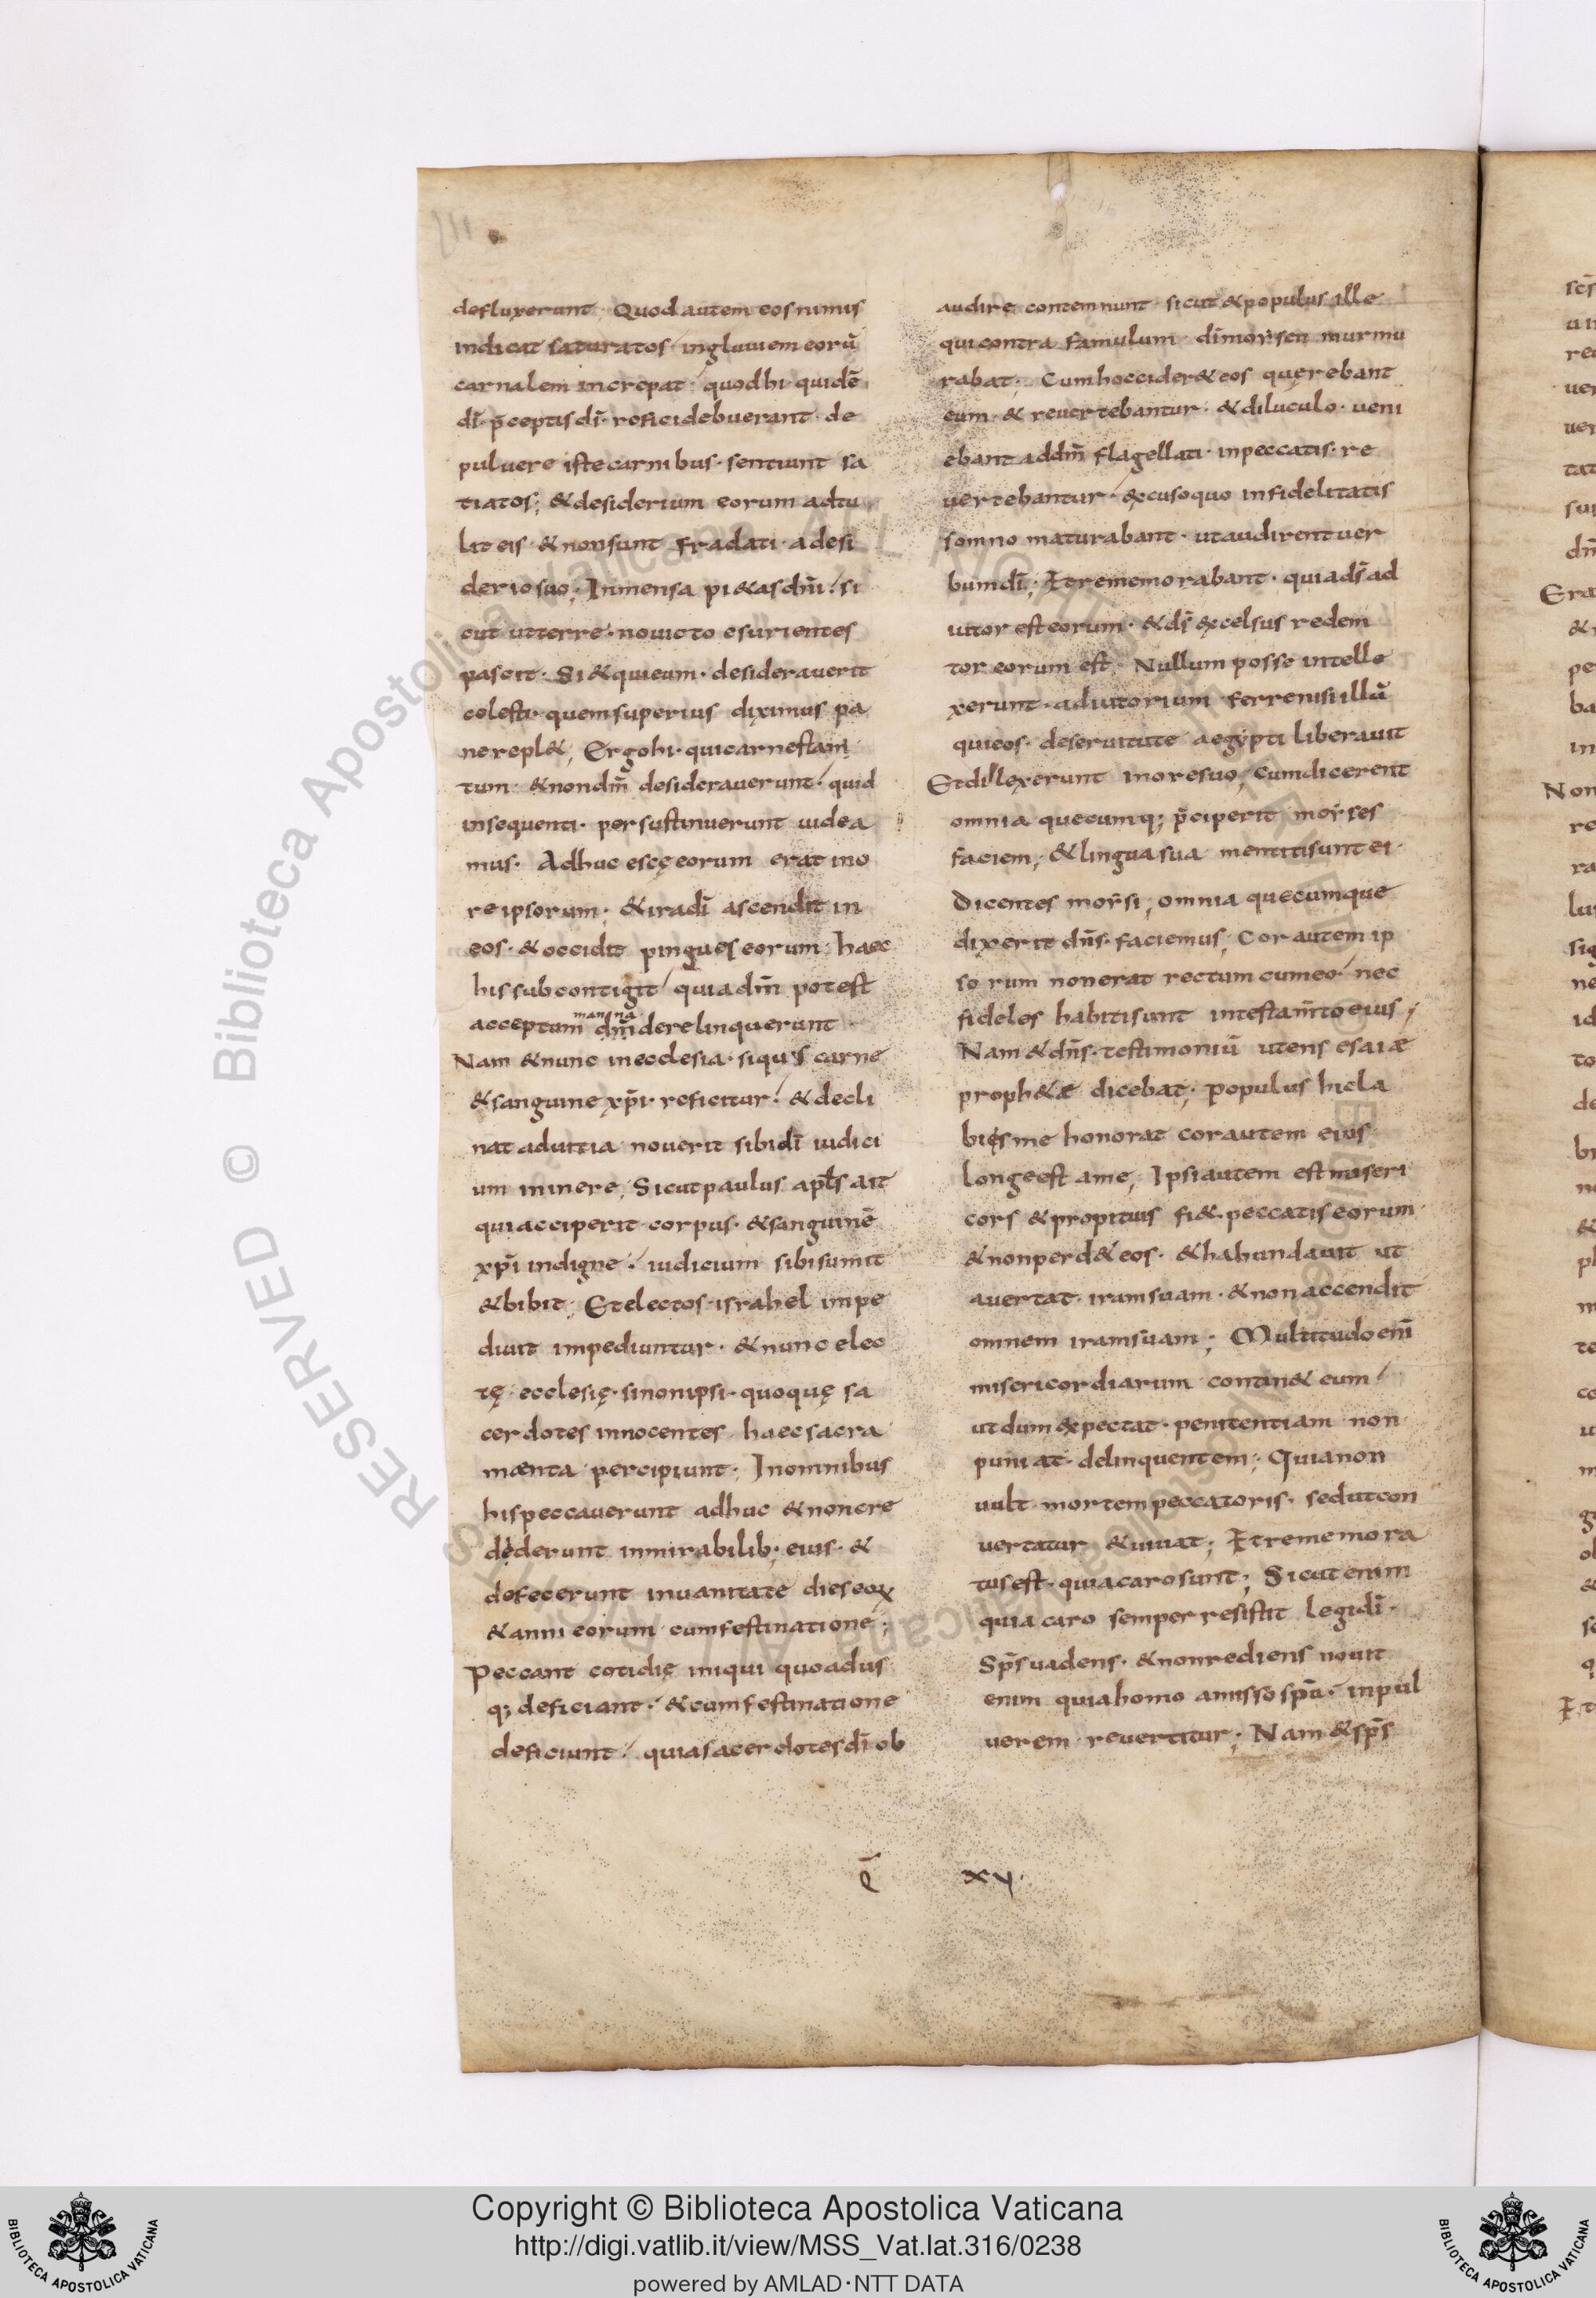 defluxerunt · Quod autem eos nimis
indicat saturatos · ingluuiem eorū
carnalem increpat · quod hi quidē
dī · p̄ceptis dī · refici debuerant · de
puluere iste carnibus · sentiunt sa
tiatos; & desiderium eorum adtu
lit eis · & non sunt fradati · a desi
derio suo; Inmensa pi&as dn̄i · si
cut ut terre · no uicto esurientes
pascit · Si & qui eum · desiderauerit
celesti · quem superius diximus pa
ne repl&; Ergo hi · qui carnes tam
tum · & non dn̄m desiderauerunt · quid
insequenti · per sustinuerunt uidea
mus · Adhuc escę eorum erat in o
re ipsorum; & ira dī ascendit in
eos · & occidit pingues eorum; haec
his sub contigit quia dn̄m potest
manna
acceptum dn̄m derelinquerunt
Nam & nunc in ecclesia · si quis carne
& sanguine xp̄i · reficitur · & decli
nat ad uitia nouerit sibi dī iudici
um ininere; Sicut paulus apl̄s ait
qui acciperit corpus · & sanguinē
xp̄i indigne · iudicium sibi sumit
& bibit; Et electos israhel inpe
diuit impediuntur · & nunc elec
tę · ecclesię · si non ipsi · quoquę sa
cerdotes innocentes haec sacra
mænta percipiunt; In omnibus
his peccauerunt adhuc & non cre
dederunt in mirabilib; eius · &
defecerunt in uanitate dies eoꝝ
& anni eorum cum festinatione;
Peccant cotidię iniqui quo adus
q; deficiant · & cum festinatione
deficiunt · quia sacerdotes dī ob
audire contemnunt · sicut & populus ille
qui contra famulum · dī morsen murmu
rabat; Cum hoccider& eos quęrebant
eum · & reuertebantur · & diluculo · ueni
ebant ad dn̄m flagellati · in peccatis · re
uertebantur · excusoquo infidelitatis
somno maturabant · ut audirent uer
bum dī; Et rememorabant · quia ds̄ ad
iutor est eorum · & ds̄ excelsus redem
tor eorum est · Nullum posse intelle
xerunt · adiutorium ferre nisi illū
qui eos · de seruitute aegypti liberauit
Et dilexerunt in ore suo, Cum dicerent
omnia quecumq; p̄ciperit morses
faciem; & lingua sua mentiti sunt ei ·
Dicentes morsi; omnia quecumque
dixerit dn̄s · faciemus; Cor autem ip
so rum non erat rectum cum eo · nec
fideles habiti sunt in testam̄to eius;
Nam & dn̄s · testimoniū utens esaiæ
proph&æ dicebat; populus hic la
biis me honorat cor autem eius
longe est a me; Ipsi autem est miseri
cors & propitius fi& · peccatis eorum
& non perd& eos · & habundauit ut
auertat · iram suam · & non accendit
omnem iram suam; Multitudo enī
misericordiarum contin& eum ·
ut dum expectat · penitentiam non
puniat · delinquentem; Quia non
uult mortem peccatoris · sed ut con
uertatur & uiuat; Et rememora
tus est · quia caro sunt; Sicut enim
quia caro semper resistit legi dī ·
Sp̄s uadens · & non rediens nouit
enim quia homo amisso spū · in pul
uerem reuertitur; Nam & sp̄s
xv ·
Copyright © Biblioteca Apostolica Vaticana
http://digi.vatlib.it/view/MSS_Vat.lat.316/0238
powered by AMLAD·NTT DATA